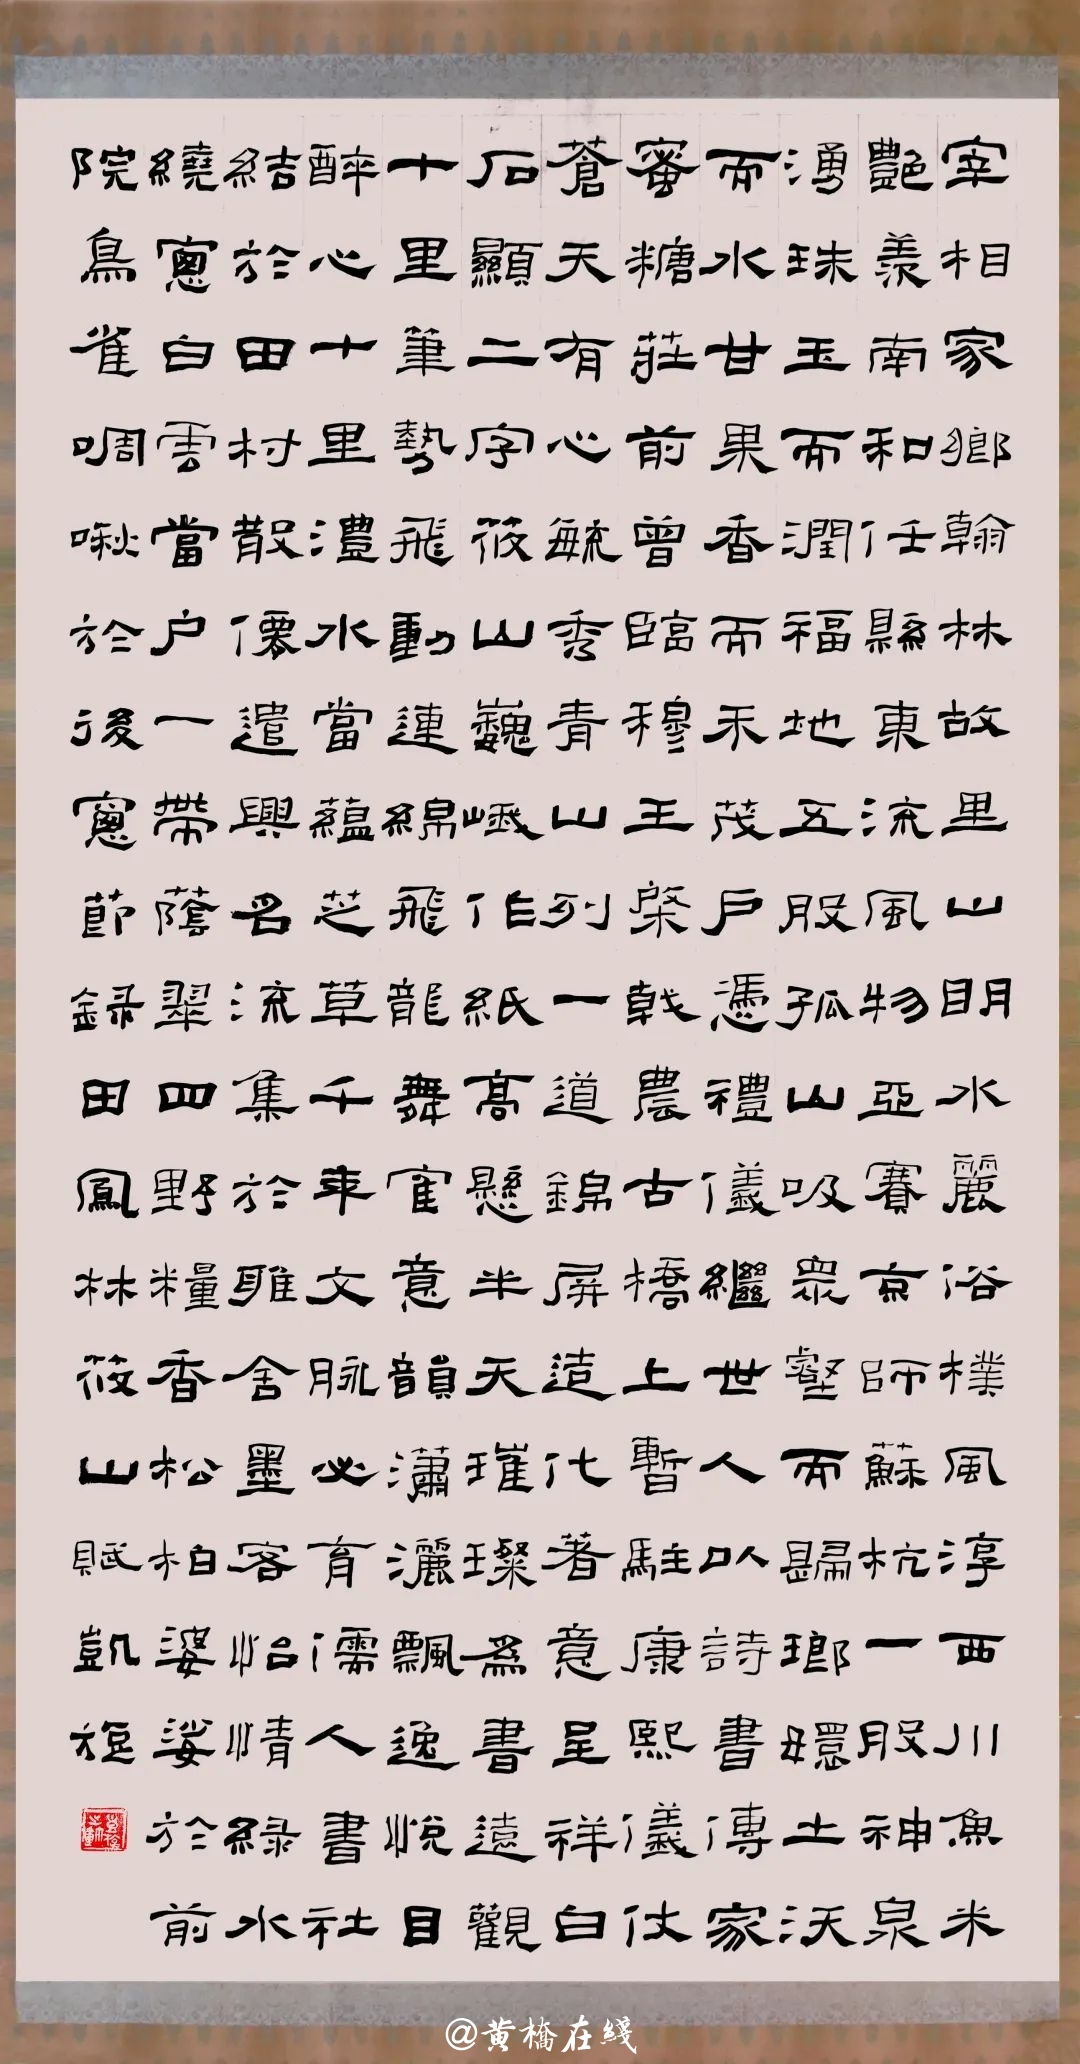 宰相家鄉翰林故里山明水麗俗樸風淳西川魚米
艷羨南和任縣東流風物亞賽京師蘇杭一股神泉
湧珠玉而潤福地五股孤山吸眾壑而歸瑯嬛土沃
而水甘果香而禾茂戶憑禮儀繼世人以詩書傳家
蜜糖莊前曾臨穆王棨戟農古橋上暫駐康熙儀仗
蒼天有心毓秀青山列一道錦屏造化著意呈祥白
石顯二字筱山巍峨作紙高懸半天璀璨為書遠觀
十里筆勢飛動連綿飛龍舞隺意韻瀟灑飄逸悅目
醉心十里澧水當蘊芝草千年文脉必育儒人書社
結於田村散僊遣興名流集於雅舍墨客怡情綠水
繞窻白雲當户一帶蔭翠四野糧香松柏婆娑於前
院鳥雀啁啾於後窻節録田鳳林筱山賦凱旋
@黄橋在綫